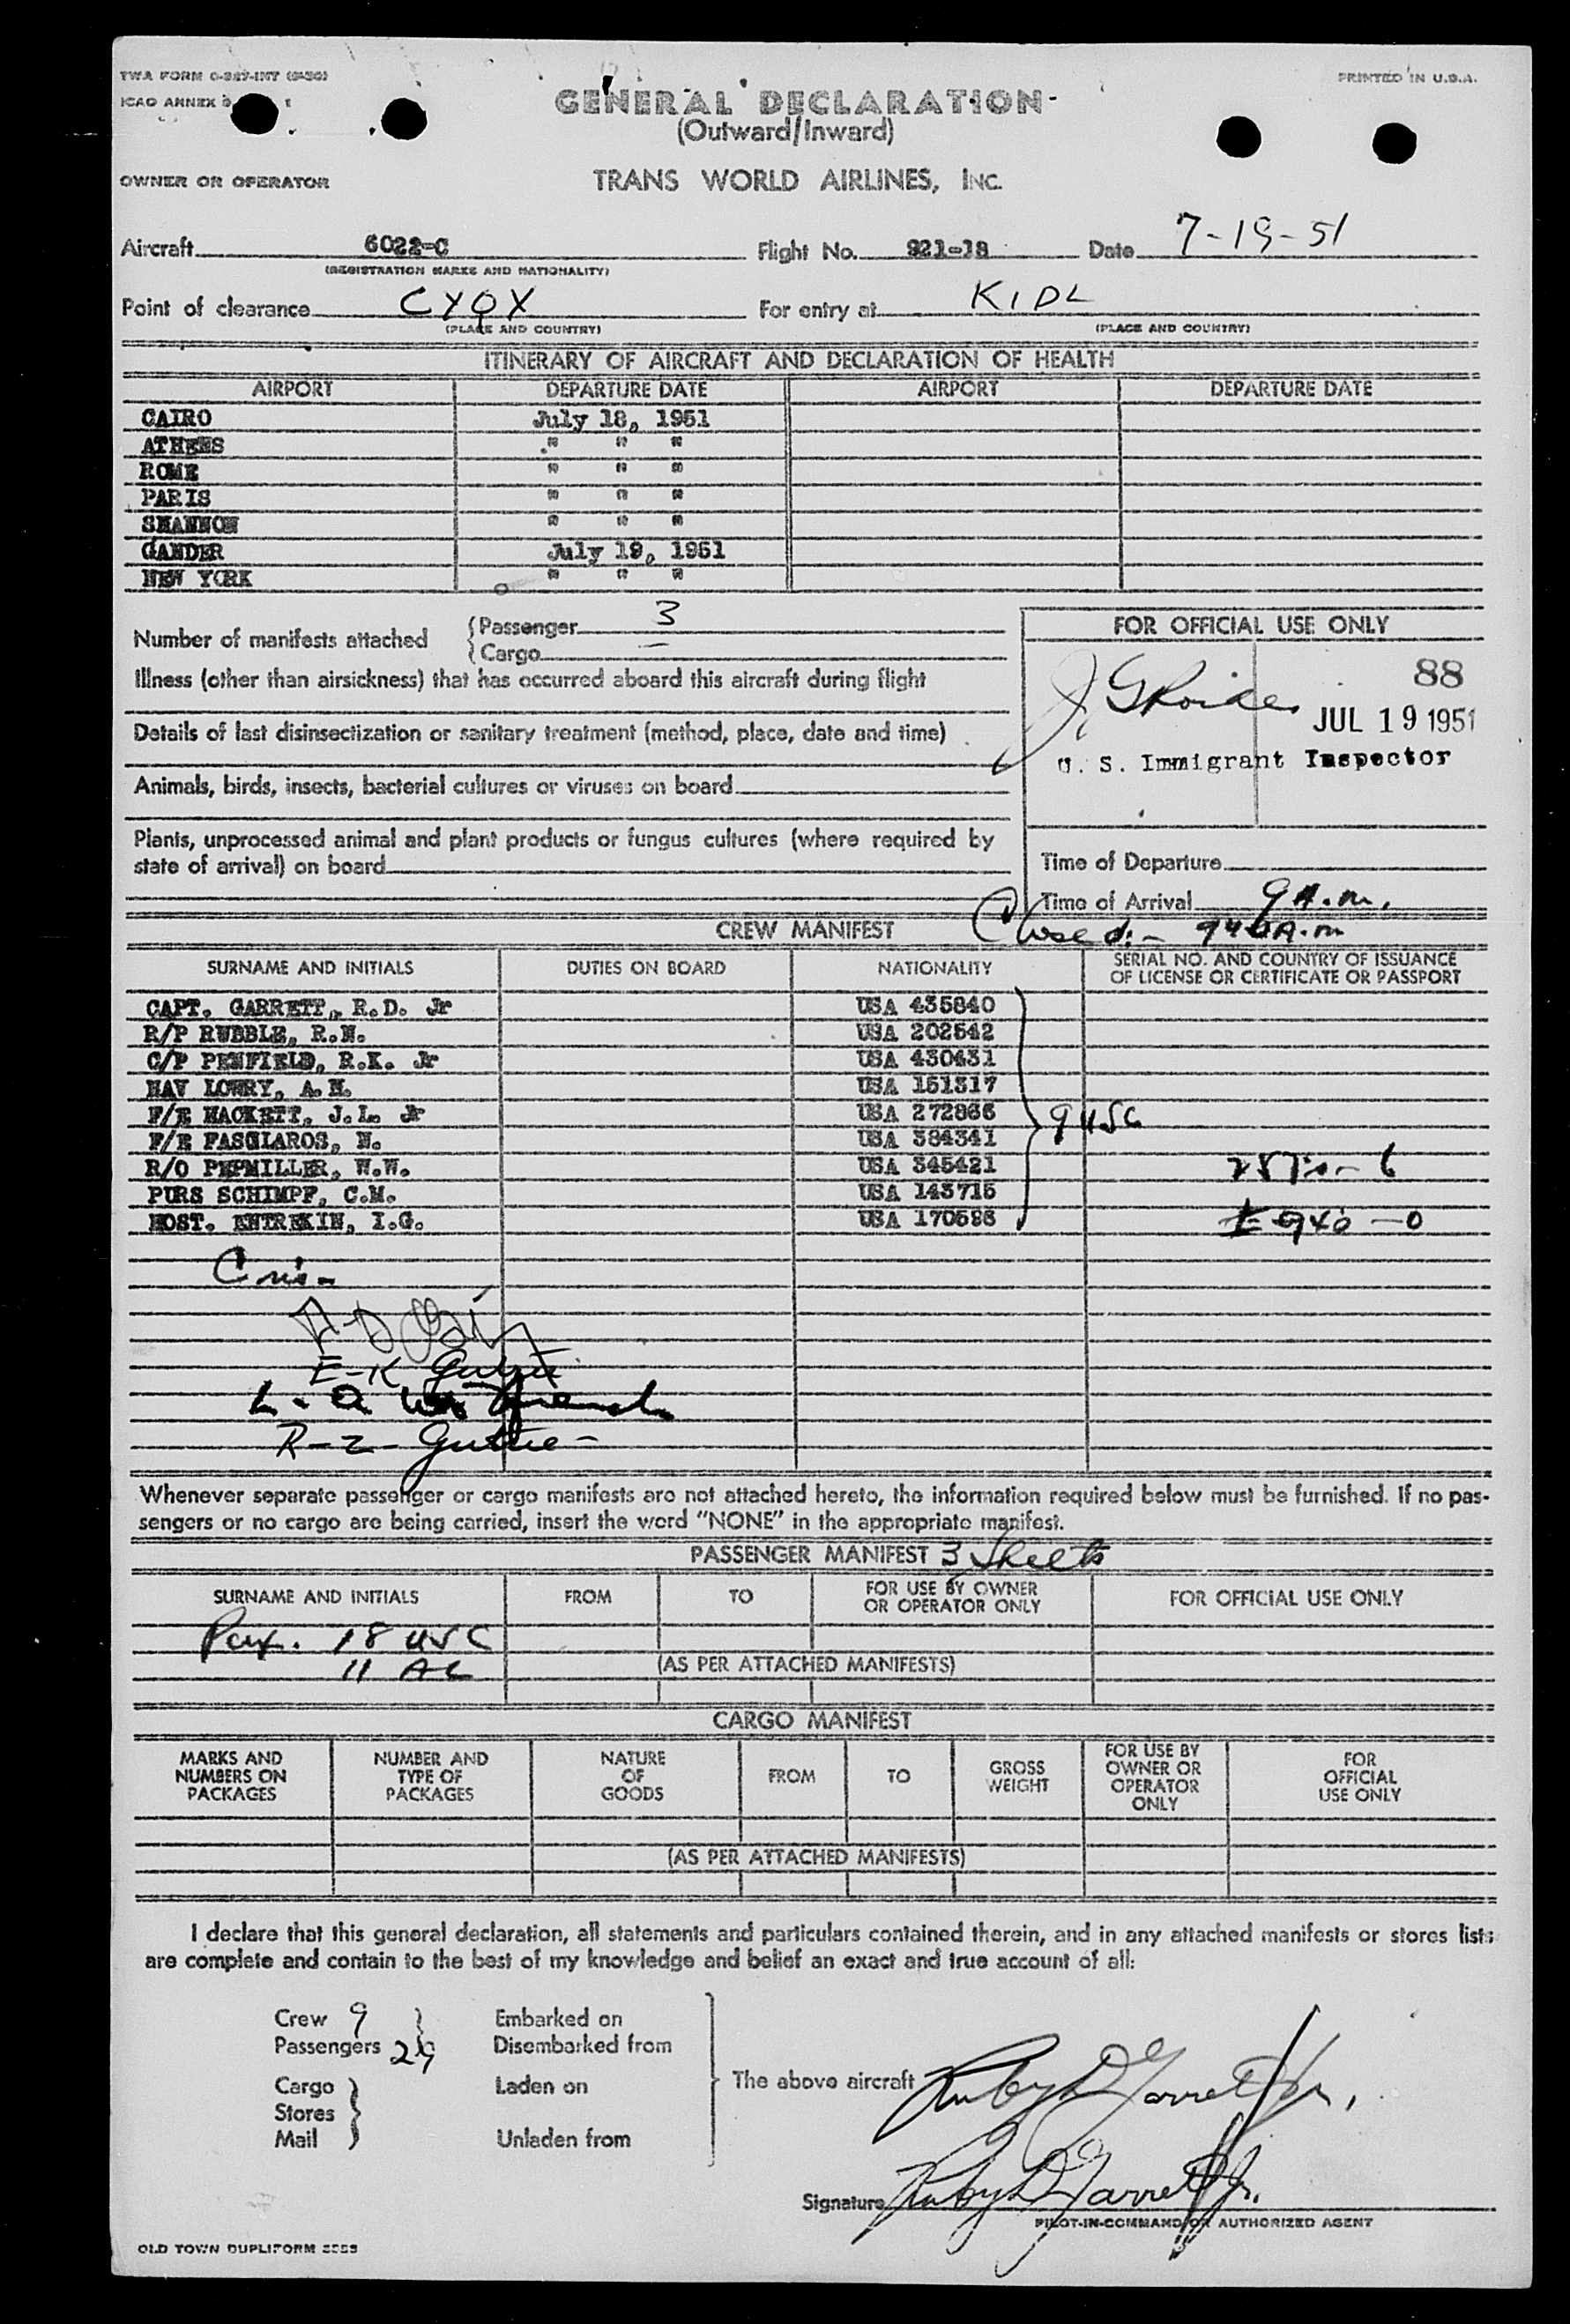 TWA FORM
PRINTED IN U.S.A.
ICAO ANNEX
GENERAL DECLARATION
(Outward/Inward)
OWNER OR OPERATOR
TRANS WORLD AIRLINES, INC.
Aircraft 6022-C Flight No. 921-18 Date 7-19-51
(REGISTRATION MARKS AND NATIONALITY)
Point of clearance CYQX For entry at KIDL
(PLACE AND COUNTRY) (PLACE AND COUNTRY)
ITINERARY OF AIRCRAFT AND DECLARATION OF HEALTH
AIRPORT DEPARTURE DATE AIRPORT DEPARTURE DATE
CAIRO July 18, 1951
ATHENS " " "
ROME " " "
PARIS " " "
SHANNON " " "
GANDER July 19, 1951
NEW YORK " " "
Number of manifests attached Passenger 3
Cargo —
FOR OFFICIAL USE ONLY
88
JUL 19 1951
U. S. Immigrant Inspector
Illness (other than airsickness) that has occurred aboard this aircraft during flight
Details of last disinsectization or sanitary treatment (method, place, date and time)
Animals, birds, insects, bacterial cultures or viruses on board
Plants, unprocessed animal and plant products or fungus cultures (where required by
state of arrival) on board
Time of Departure
Time of Arrival 9 A.m.
Closed:-
CREW MANIFEST
SURNAME AND INITIALS DUTIES ON BOARD NATIONALITY SERIAL NO. AND COUNTRY OF ISSUANCE
OF LICENSE OR CERTIFICATE OR PASSPORT
CAPT. GARRETT, R.D. Jr USA 435840
R/P RUBBLE, R.N. USA 202542
C/P PENFIELD, R.K. Jr USA 430431
NAV LOWRY, A.N. USA 151317
F/E HACKETT, J.L. Jr USA 272866
F/E FASGIAROS, N. USA 384341
9 USC
R/O PEPMILLER, W.W. USA 345421
PURS SCHIMPF, C.M. USA 143715
HOST. ENTREKIN, I.G. USA 170598
E-K
R-Z- Guthie -
Whenever separate passenger or cargo manifests are not attached hereto, the information required below must be furnished. If no pas-
sengers or no cargo are being carried, insert the word "NONE" in the appropriate manifest.
PASSENGER MANIFEST 3 Sheets
SURNAME AND INITIALS FROM TO FOR USE BY OWNER
OR OPERATOR ONLY FOR OFFICIAL USE ONLY
Pax. 18 USC
11 AL
(AS PER ATTACHED MANIFESTS)
CARGO MANIFEST
MARKS AND
NUMBERS ON
PACKAGES
NUMBER AND
TYPE OF
PACKAGES
NATURE
OF
GOODS
FROM
TO
GROSS
WEIGHT
FOR USE BY
OWNER OR
OPERATOR
ONLY
FOR
OFFICIAL
USE ONLY
(AS PER ATTACHED MANIFESTS)
I declare that this general declaration, all statements and particulars contained therein, and in any attached manifests or stores lists
are complete and contain to the best of my knowledge and belief an exact and true account of all:
Crew 9 Embarked on
Passengers 29 Disembarked from
Cargo Laden on
Stores
Mail Unladen from
The above aircraft Ruby D Garrett Jr.
Signature Ruby D Garrett Jr.
PILOT-IN-COMMAND OR AUTHORIZED AGENT
OLD TOWN DUPLIFORM